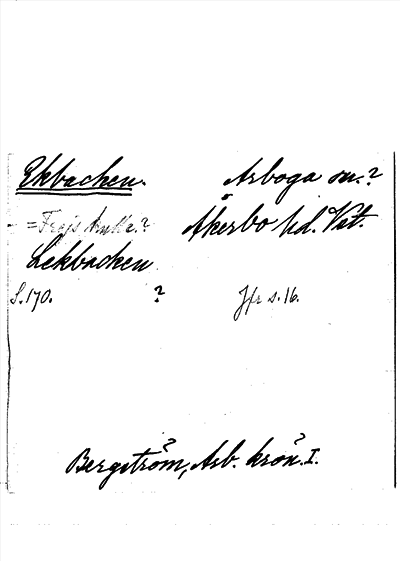 Ekbacken. Arboga sn.?
= Frejs kulle? Åkerbo hd. Vst.
Lekbacken
S. 170. ? Jfr s. 16.
Bergström, Arb. krön. I.